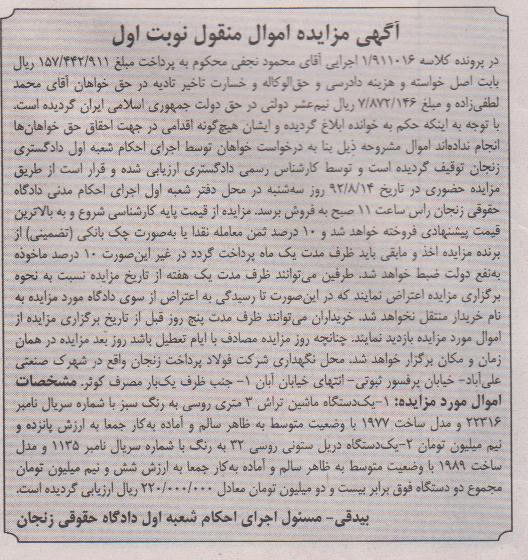 آگهی مزایده اموال منقول نوبت اول
در پرونده کلاسه ۱/۹۱۱۰۱۶ اجرایی آقای محمود نجفی محکوم به پرداخت مبلغ ۱۵۷/۴۴۲/۹۱۱ ریال
بابت اصل خواسته و هزینه دادرسی و حق‌الوکاله و خسارت تاخیر تادیه در حق خواهان آقای محمد
لطفی‌زاده و مبلغ ۷/۸۷۲/۱۴۶ ریال نیم‌عشر دولتی در حق دولت جمهوری اسلامی ایران گردیده است.
با توجه به اینکه حکم به خوانده ابلاغ گردیده و ایشان هیچ‌گونه اقدامی در جهت احقاق حق خواهان‌ها
انجام نداده‌اند اموال مشروحه ذیل بنا به درخواست خواهان توسط اجرای احکام شعبه اول دادگستری
زنجان توقیف گردیده است و توسط کارشناس رسمی دادگستری ارزیابی شده و قرار است از طریق
مزایده حضوری در تاریخ ۹۲/۸/۱۴ روز سه‌شنبه در محل دفتر شعبه اول اجرای احکام مدنی دادگاه
حقوقی زنجان راس ساعت ۱۱ صبح به فروش برسد. مزایده از قیمت پایه کارشناسی شروع و به بالاترین
قیمت پیشنهادی فروخته خواهد شد و ۱۰ درصد ثمن معامله نقدا یا به‌صورت چک بانکی (تضمینی) از
برنده مزایده اخذ و مابقی باید ظرف مدت یک ماه پرداخت گردد در غیر این‌صورت ۱۰ درصد ماخوذه
به‌نفع دولت ضبط خواهد شد. طرفین می‌توانند ظرف مدت یک هفته از تاریخ مزایده نسبت به نحوه
برگزاری مزایده اعتراض نمایند که در این‌صورت تا رسیدگی به اعتراض از سوی دادگاه مورد مزایده به
نام خریدار منتقل نخواهد شد. خریداران می‌توانند ظرف مدت پنج روز قبل از تاریخ برگزاری مزایده از
اموال مورد مزایده بازدید نمایند. چنانچه روز مزایده مصادف با ایام تعطیل باشد روز بعد مزایده در همان
زمان و مکان برگزار خواهد شد. محل نگهداری شرکت فولاد پرداخت زنجان واقع در شهرک صنعتی
علی‌آباد- خیابان پرفسور ثبوتی- انتهای خیابان آبان ۱- جنب ظرف یک‌بار مصرف کوثر. مشخصات
اموال مورد مزایده: ۱-یک‌دستگاه ماشین تراش ۳ متری روسی به رنگ سبز با شماره سریال نامبر
۲۲۳۱۶ و مدل ساخت ۱۹۷۷ با وضعیت متوسط به ظاهر سالم و آماده به‌کار جمعا به ارزش پانزده و
نیم میلیون تومان ۲-یک‌دستگاه دریل ستونی روسی ۳۲ به رنگ با شماره سریال نامبر ۱۱۳۵ و مدل
ساخت ۱۹۸۹ با وضعیت متوسط به ظاهر سالم و آماده به‌کار جمعا به ارزش شش و نیم میلیون تومان
مجموع دو دستگاه فوق برابر بیست و دو میلیون تومان معادل ۲۲۰/۰۰۰/۰۰۰ ریال ارزیابی گردیده است.
بیدقی- مسئول اجرای احکام شعبه اول دادگاه حقوقی زنجان